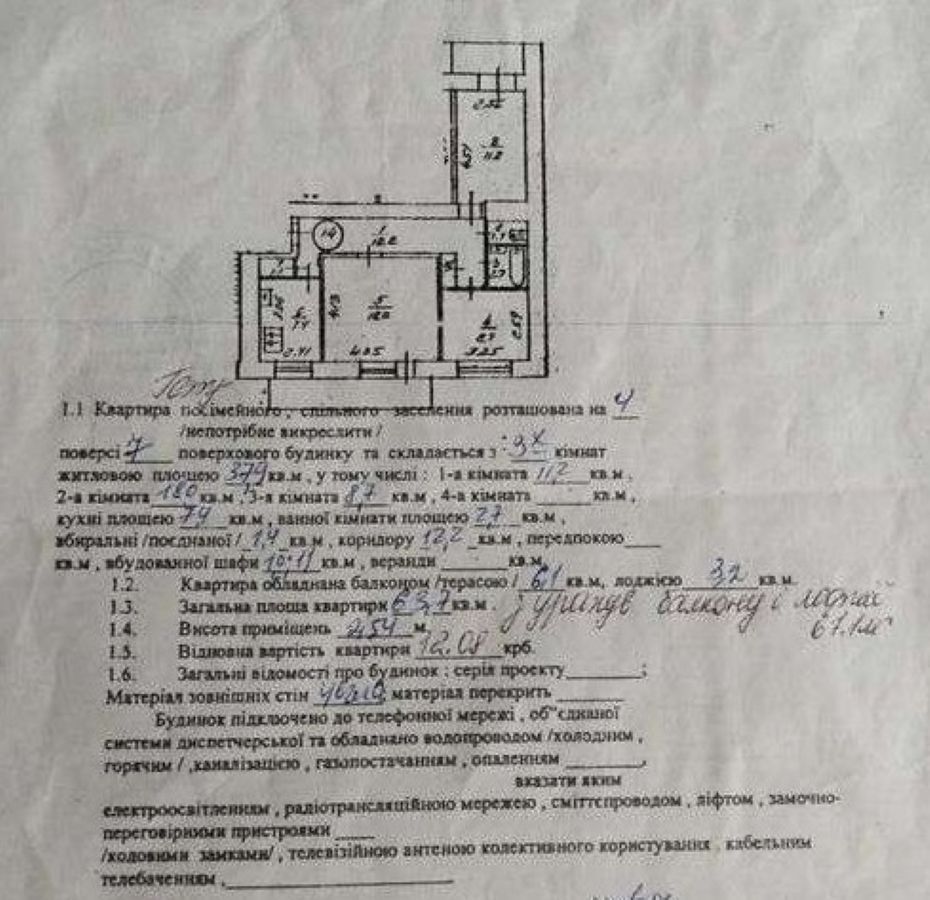 2.56
8
11.2
4.37
14
1
12.2
5
18.0
4.13
4.35
6
7.4
2.41
4
8.7
3.25
2.69
3
2.7
1.1 Квартира посімейного, спільного заселення розташована на 4
/непотрібне викреслити/
поверсі 7 поверхового будинку та складається з 3х кімнат
житловою площею 37,9 кв.м, у тому числі: 1-а кімната 11,2 кв.м,
2-а кімната 18,0 кв.м, 3-я кімната 8,7 кв.м, 4-а кімната кв.м,
кухні площею 7,4 кв.м, ванної кімнати площею 2,7 кв.м,
вбиральні /поєднаної/ 1,4 кв.м, коридору 12,2 кв.м, передпокою
кв.м, вбудованної шафи кв.м, веранди кв.м.
1.2. Квартира обладнана балконом /терасою/ 6,1 кв.м, лоджією 3,2 кв.м.
1.3. Загальна площа квартири 63,7 кв.м. балкону і лоджій
67.1 м²
1.4. Висота приміщень 2,54 м.
1.5. Відновна вартість квартири 72.08 крб.
1.6. Загальні відомості про будинок: серія проекту ;
Матеріал зовнішніх стін матеріал перекрить
Будинок підключено до телефонної мережі, об"єднаної
системи диспетчерської та обладнано водопроводом /холодним,
горячим/, каналізацією, газопостачанням, опаленням ,
вказати яким
електроосвітленням, радіотрансляційною мережею, сміттєпроводом, ліфтом, замочно-
переговірними пристроями
/кодовими замками/, телевізійною антеною колективного користування, кабельним
телебаченням,